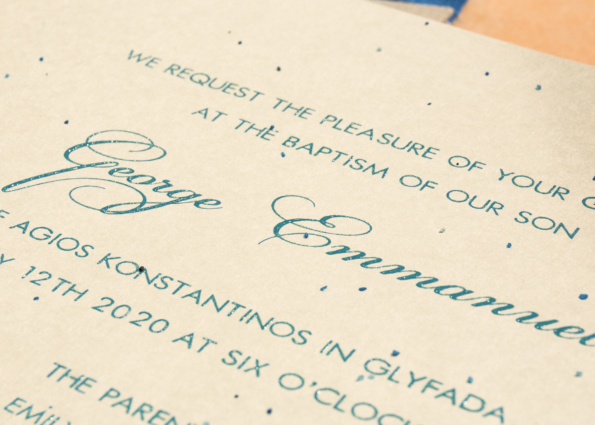 WE REQUEST THE PLEASURE OF YOUR
AT THE BAPTISM OF OUR SON
George Emmanuel
AGIOS KONSTANTINOS IN GLYFADA
12TH 2020 AT SIX O'CLOCK
THE